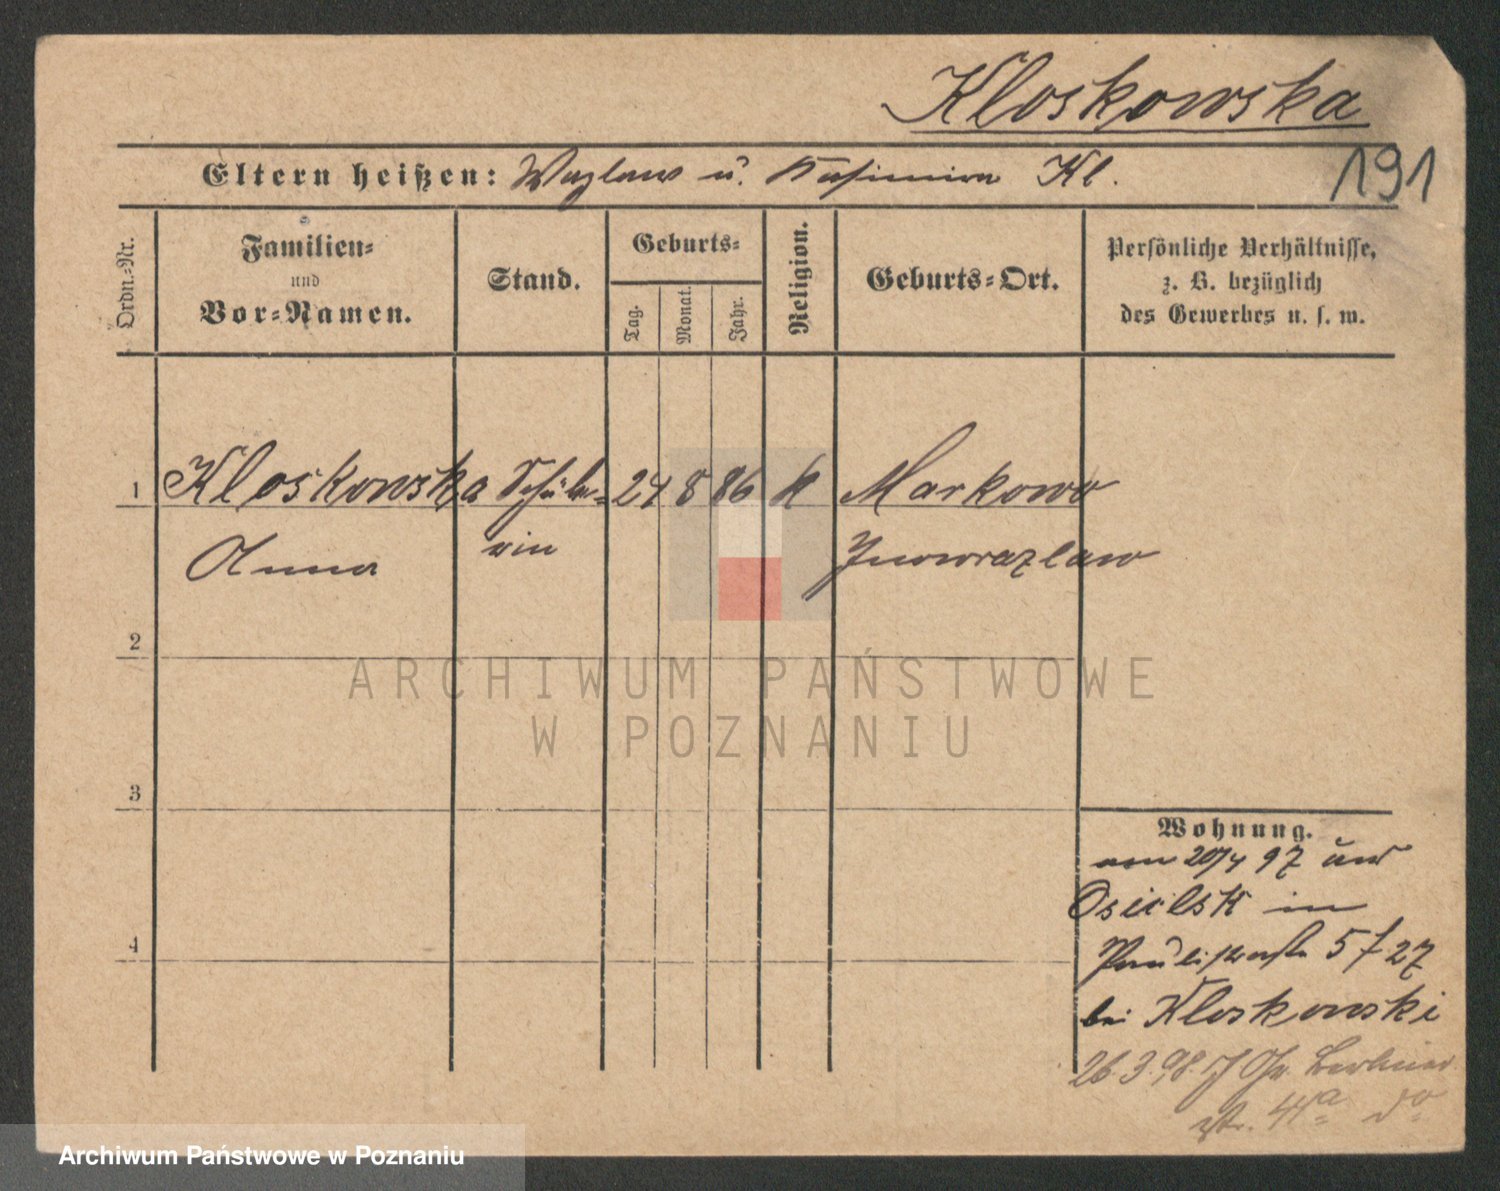 Kloskowska
191
Eltern heißen: Wazlaw u. Kasimira Kl.
Ordn.-Nr.
Familien-
und
Vor-Namen.
Stand.
Geburts-
Tag.
Monat.
Jahr.
Religion.
Geburts-Ort.
Persönliche Verhältnisse,
z. B. bezüglich
des Gewerbes u. s. w.
1 Kloskowska Schüle- 24 8 86 k Markowo
Anna rin Inowrazlaw
2
3
4
Wohnung.
am 20/4 97 aus
Osielsk in
Paulistraße 5 f 27
bei Kloskowski
26.3.98. Berliner
str. 4a do
ARCHIWUM PAŃSTWOWE
W POZNANIU
Archiwum Państwowe w Poznaniu